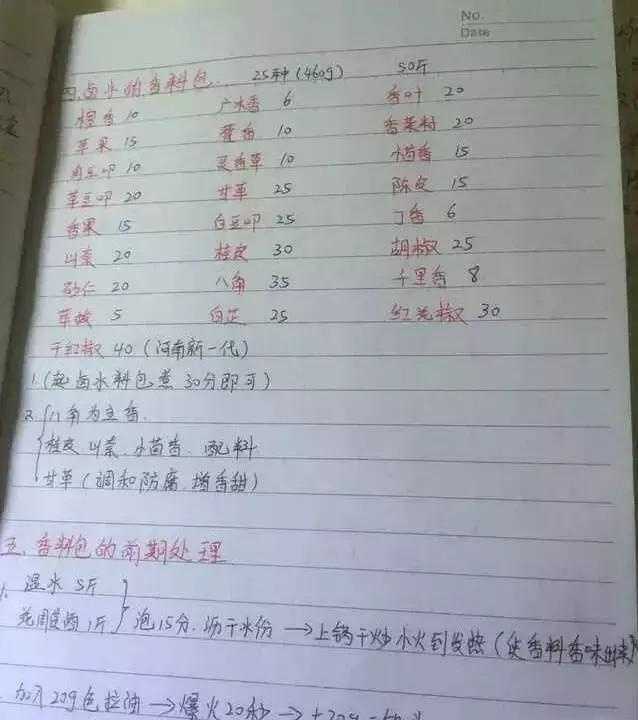 No.
Date
四.卤水的香料包. 25种(460g) 50斤
檀香 10 广木香 6 香叶 20
草果 15 藿香 10 香菜籽 20
肉豆叩 10 灵香草 10 小茴香 15
草豆叩 20 甘草 25 陈皮 15
香果 15 白豆叩 25 丁香 6
山奈 20 桂皮 30 胡椒 25
砂仁 20 八角 35 千里香 8
荜拨 5 白芷 25 红花椒 30
干红椒 40 (河南新一代)
1.(起卤水料包煮30分即可)
2.八角为主香.
桂皮 山奈.小茴香.配料
甘草(调和防腐.增香甜)
五.香料包的前期处理
1. 温水 5斤
1斤 泡15分.沥干水份→上锅干炒小火到发热(使香料香味出来)
加入20g色拉油→爆火20秒→